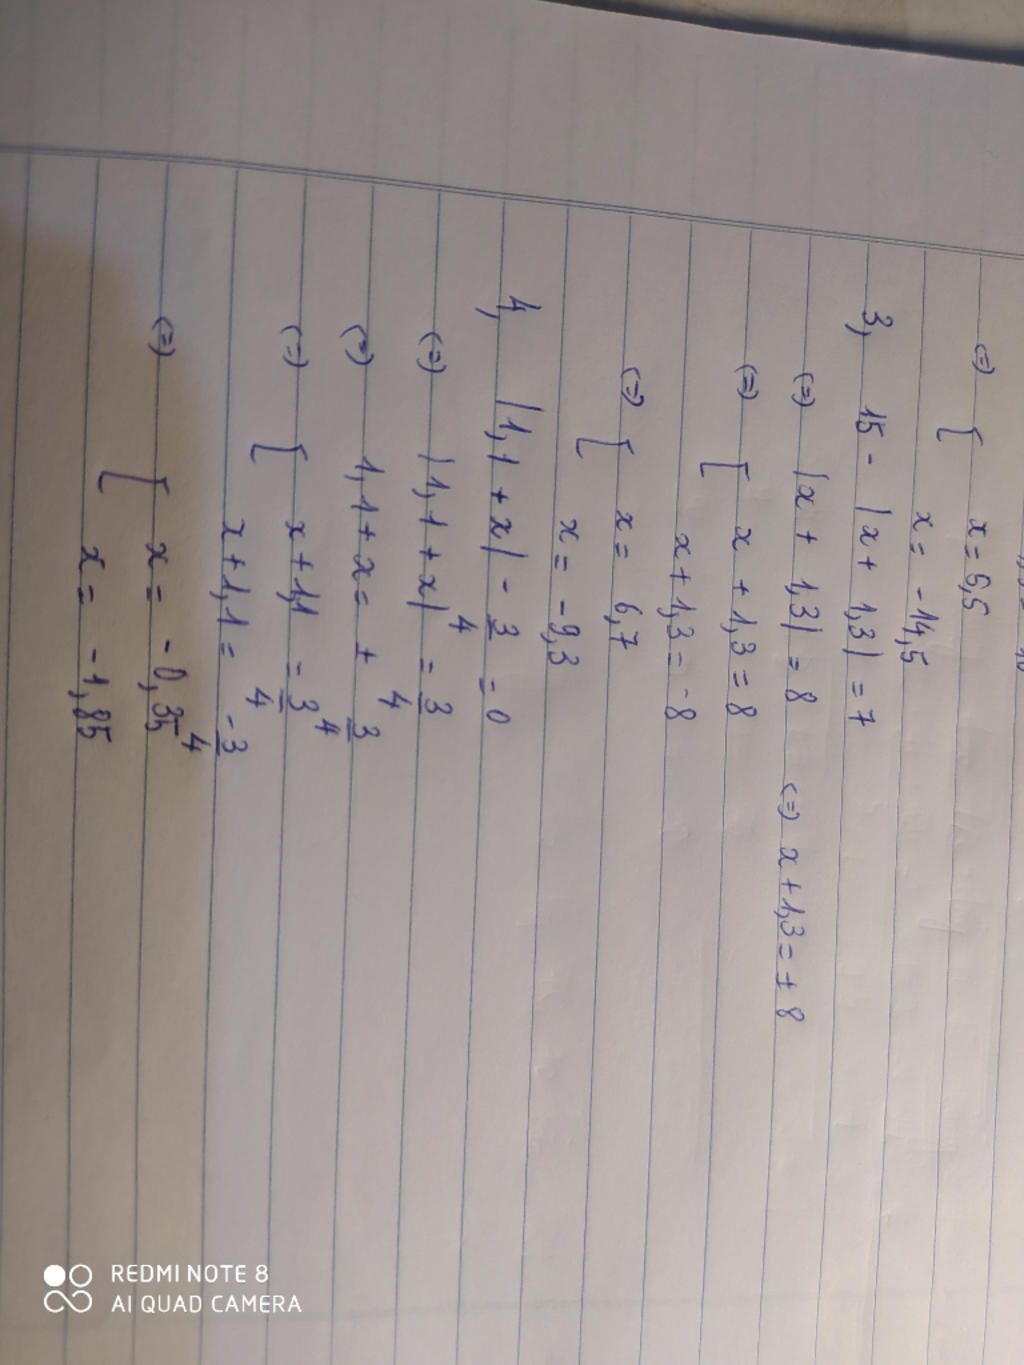 (=) [ x = 5,5
x = -14,5
3, 15 - |x + 1,3| = 7
(=) |x + 1,3| = 8 (=) x + 1,3 = ± 8
(=) [ x + 1,3 = 8
x + 1,3 = -8
(=) [ x = 6,7
x = -9,3
4, |1,1 + x| - 3/4 = 0
(=) |1,1 + x| = 3/4
(=) 1,1 + x = ± 3/4
(=) [ x + 1,1 = 3/4
x + 1,1 = -3/4
(=) [ x = -0,35
x = -1,85
REDMI NOTE 8
AI QUAD CAMERA